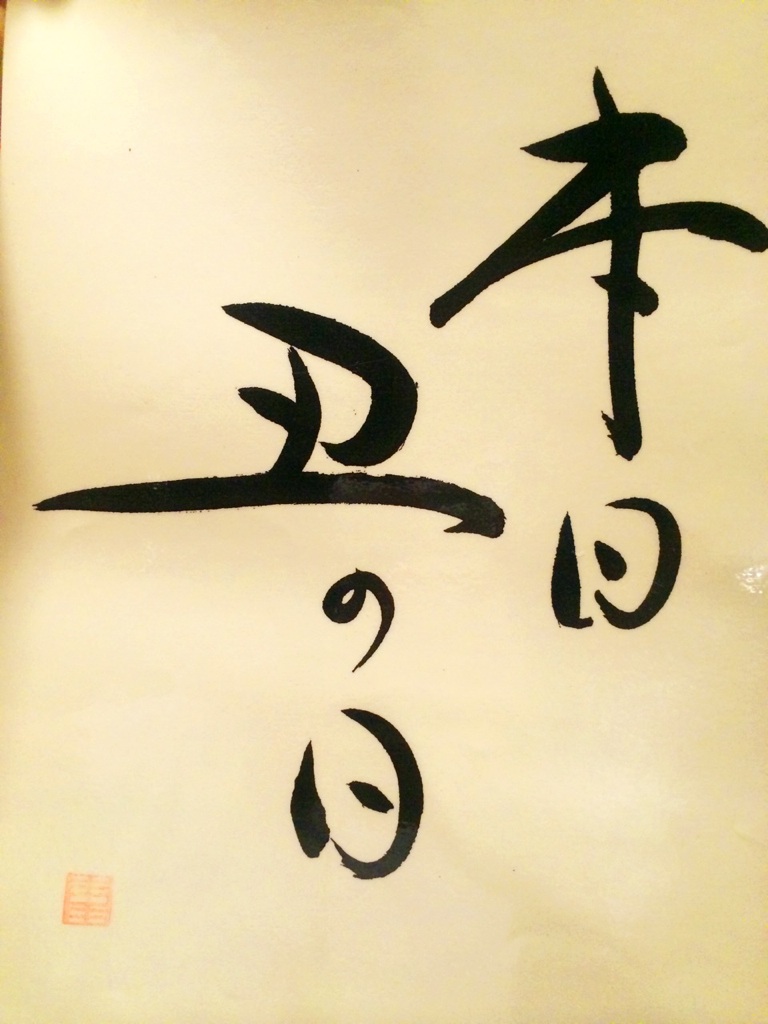 本日
丑の日